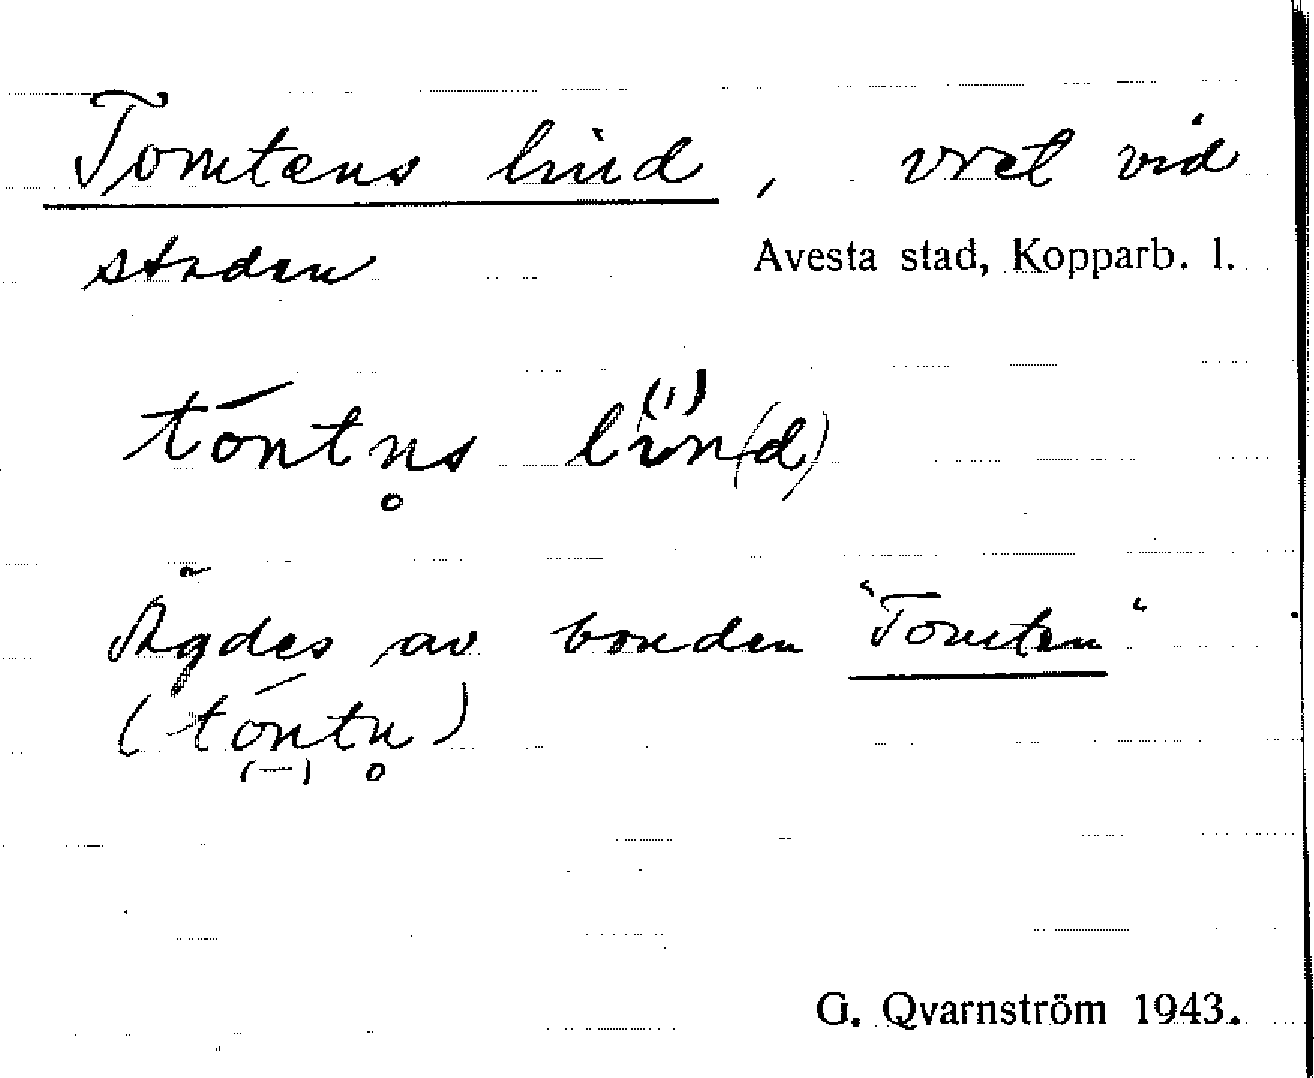 Tomtens lind, vret vid
staden Avesta stad, Kopparb. l.
tóntn̥s lìn(d)
Ägdes av bonden "Tomten"
(tóntn̥)
G. Qvarnström 1943.